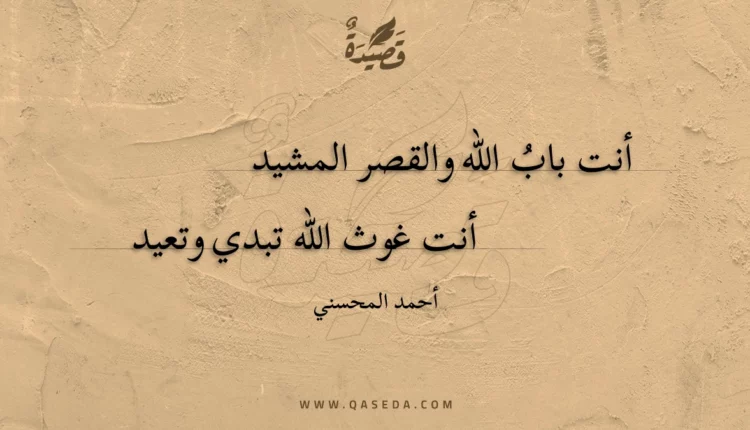 قَصِيدَةٌ
أنت بابُ الله والقصر المشيد
أنت غوث الله تبدي وتعيد
أحمد المحسني
WWW.QASEDA.COM